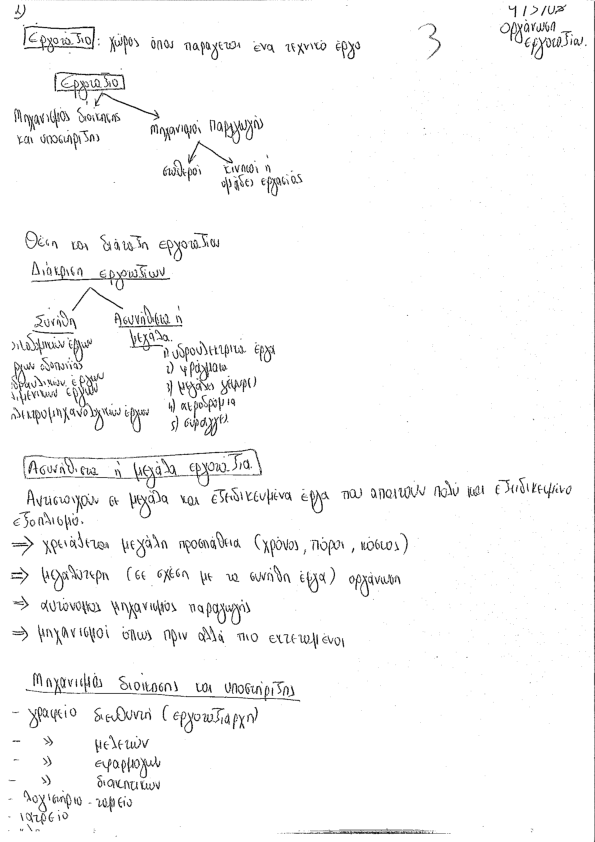 1)
4/3/08
Οργάνωση
εργοταξίου.
3
Εργοτάξιο : χώρος όπου παράγεται ένα τεχνικό έργο
Εργοτάξιο
Μηχανισμός διοίκησης
και υποστήριξης
Μηχανισμοί Παραγωγής
σταθεροί
κινητοί ή
ομάδες εργασίας
Θέση και διάταξη εργοταξίου
Διάκριση εργοταξίων
Συνήθη
Ασυνήθιστα ή
μεγάλα
οικοδομικών έργων
έργων οδοποιίας
υδραυλικών έργων
λιμενικών έργων
ηλεκτρομηχανολογικών έργων
1) υδροηλεκτρικά έργα
2) φράγματα
3) μεγάλες γέφυρες
4) αεροδρόμια
5) σήραγγες
Ασυνήθιστα ή μεγάλα εργοτάξια.
Αντιστοιχούν σε μεγάλα και εξειδικευμένα έργα που απαιτούν πολύ και εξειδικευμένο
εξοπλισμό.
⇒ χρειάζεται μεγάλη προσπάθεια (χρόνος, πόροι, κόστος)
⇒ μεγαλύτερη (σε σχέση με τα συνήθη έργα) οργάνωση
⇒ αυτόνομος μηχανισμός παραγωγής
⇒ μηχανισμοί όπως πριν αλλά πιο εκτεταμένοι
Μηχανισμός διοίκησης και υποστήριξης
- γραφείο διευθυντή (εργοταξιάρχη)
- » μελετών
- » εφαρμογών
- » διοικητικών
- λογιστήριο - ταμείο
- ιατρείο